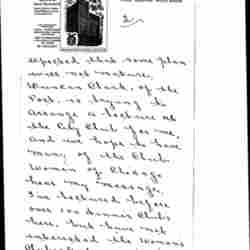 2
expected that some plan
will not mature.
Duncan Clark, of the
Post, is trying to
arrange a lecture at
the City Club for me,
and we hope to have
many of the Club
Women of Chicago
hear my message.
I've lectured before
over 100 dinner Clubs
here, but have not
interested the Women's